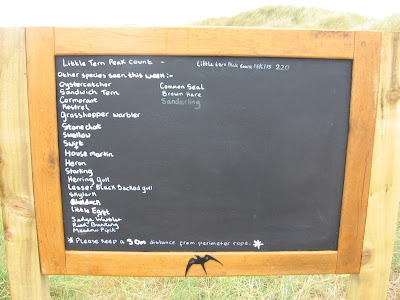 Little Tern Peak Count -
Little tern Peak Count 220
Other species seen this week:-
Oystercatcher
Sandwich Tern
Cormorant
Kestrel
Grasshopper warbler
Stonechat
Swallow
Swift
House Martin
Heron
Starling
Herring Gull
Lesser Black Backed gull
Skylark
Shelduck
Little Egret
Sedge Warbler
Reed Bunting
Meadow Pipit
Common Seal
Brown Hare
Sanderling
* Please keep a 50m distance from perimeter rope. *